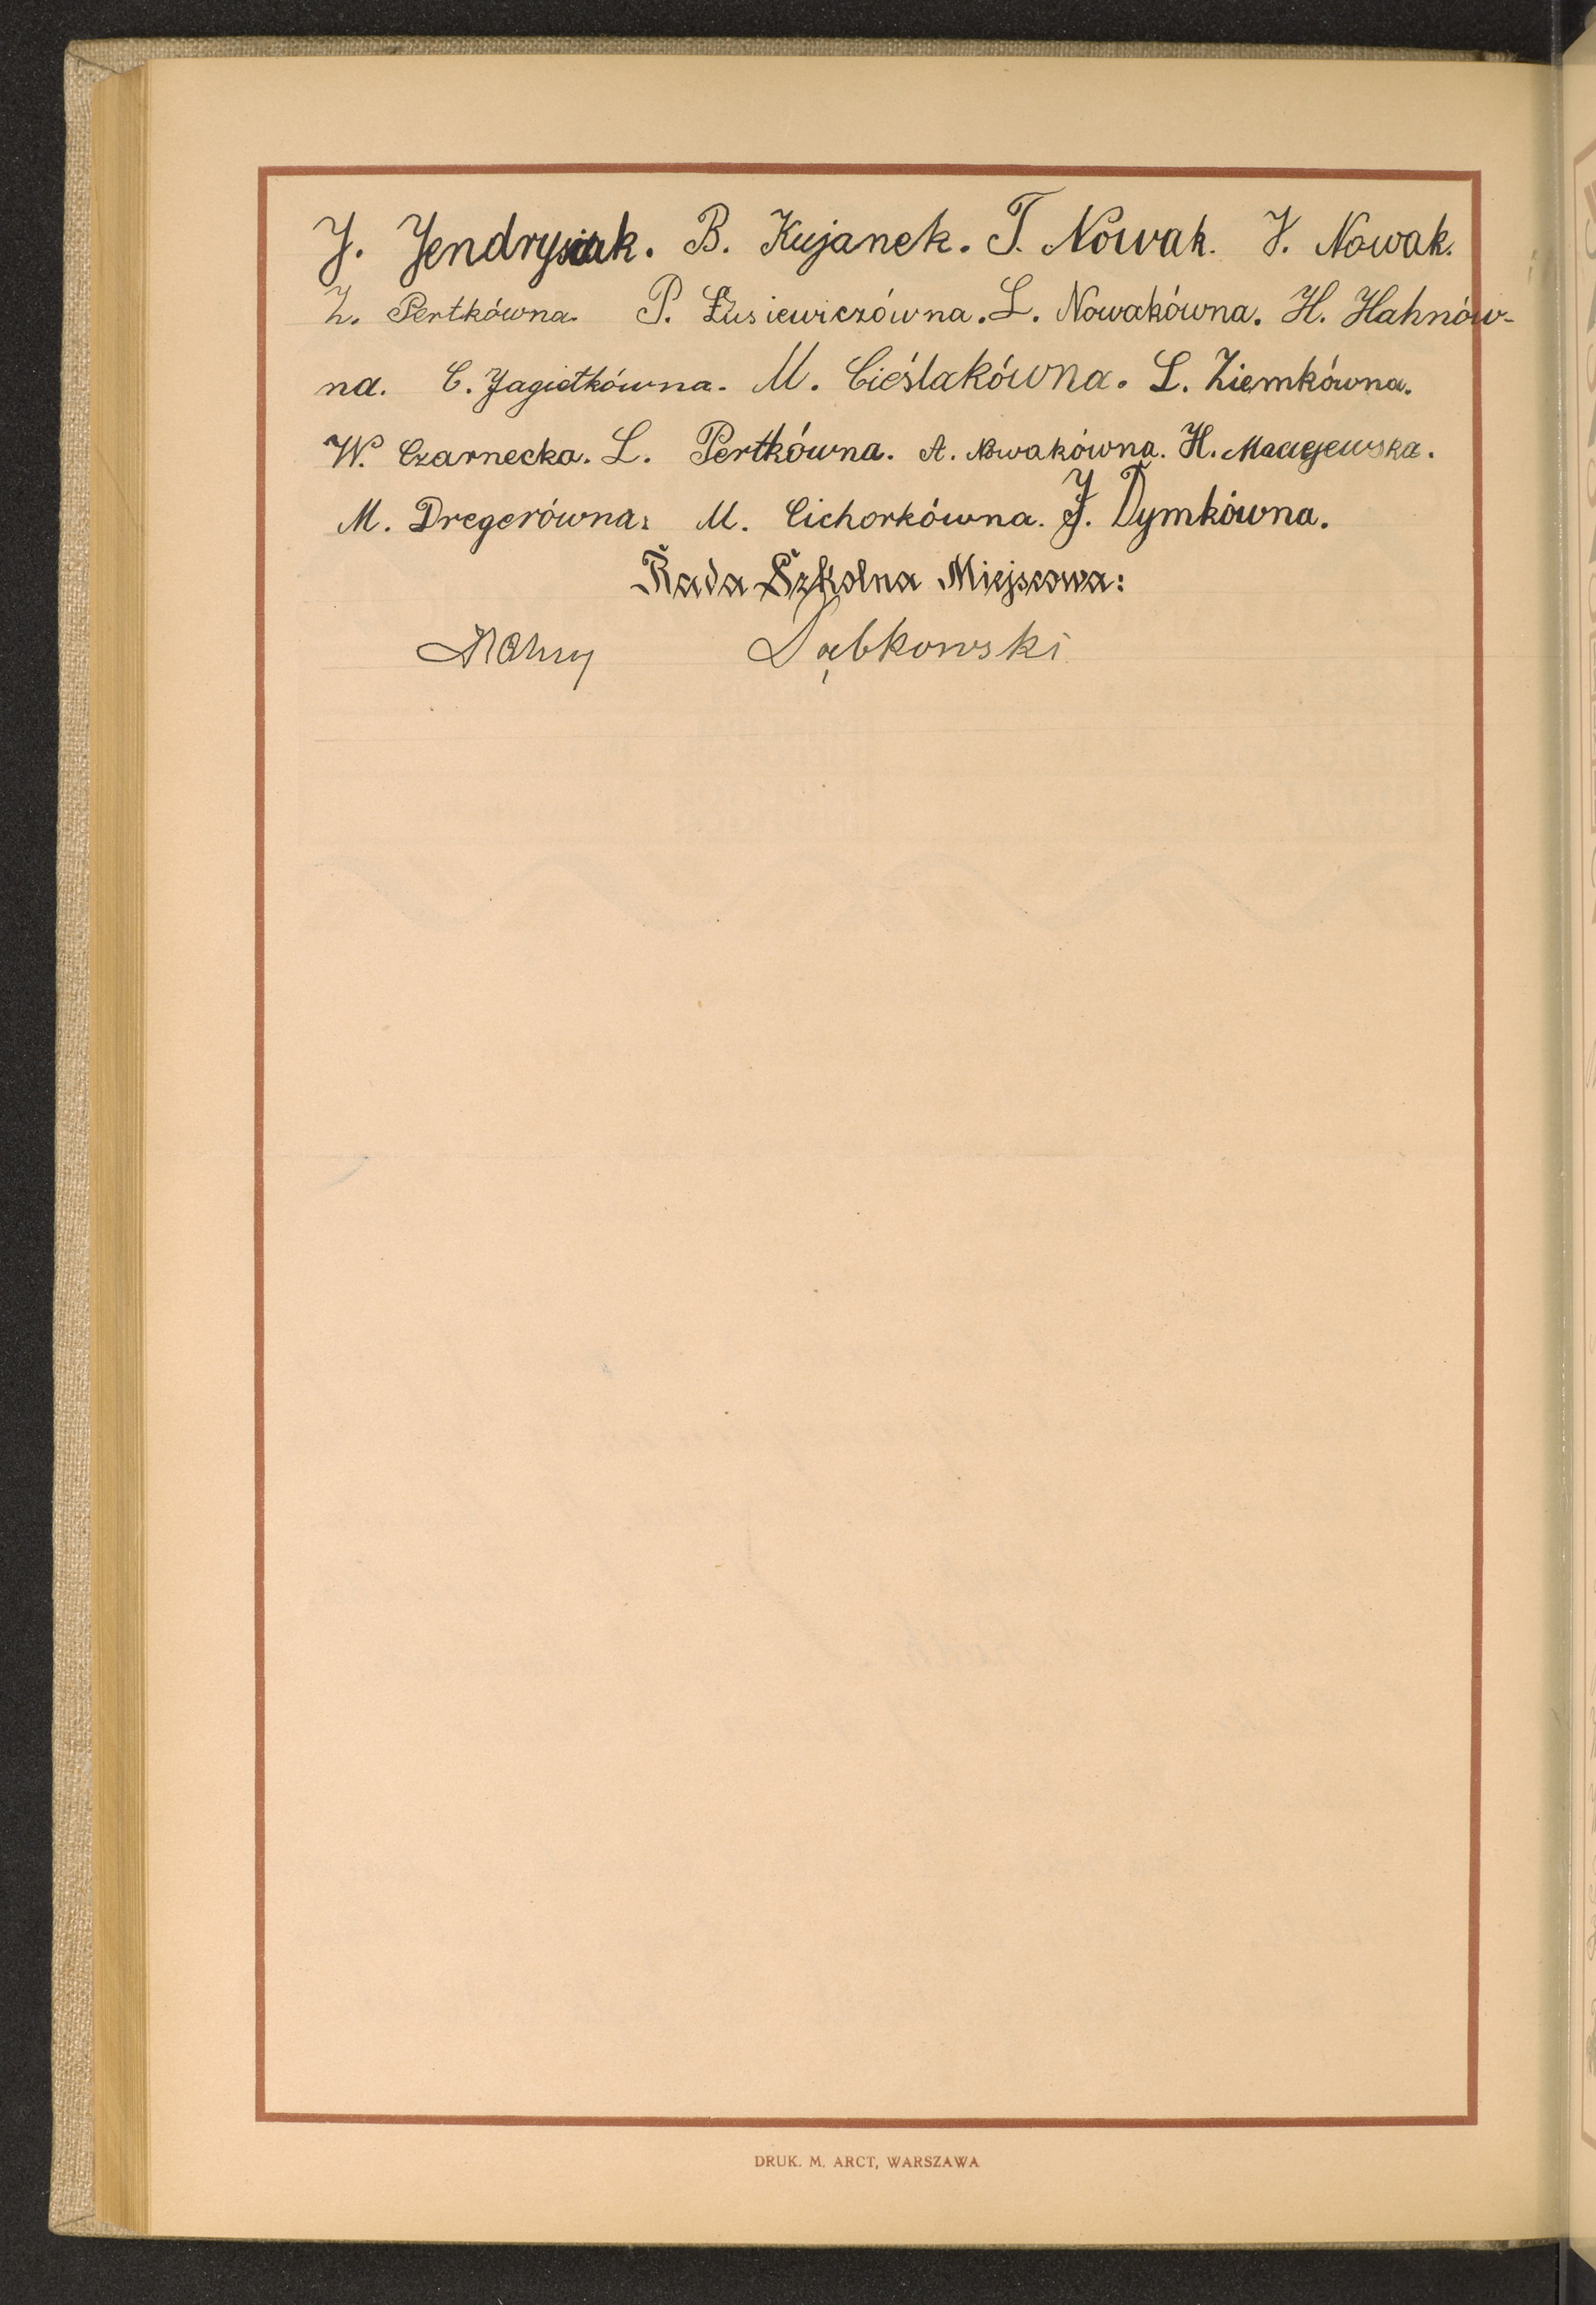 J. Jendrysiak. B. Kujanek. T. Nowak. J. Nowak.
Z. Pertkówna. P. Łusiewiczówna. L. Nowakówna. H. Hahnów-
na. C. Jagiełkówna. M. Cieślakówna. L. Ziemkówna.
W. Czarnecka. L. Pertkówna. A. Nowakówna. H. Maajewska.
M. Dregerówna. M. Cichorkówna. J. Dymkówna.
Rada Szkolna Miejscowa:
Dąbkowski
DRUK. M. ARCT, WARSZAWA